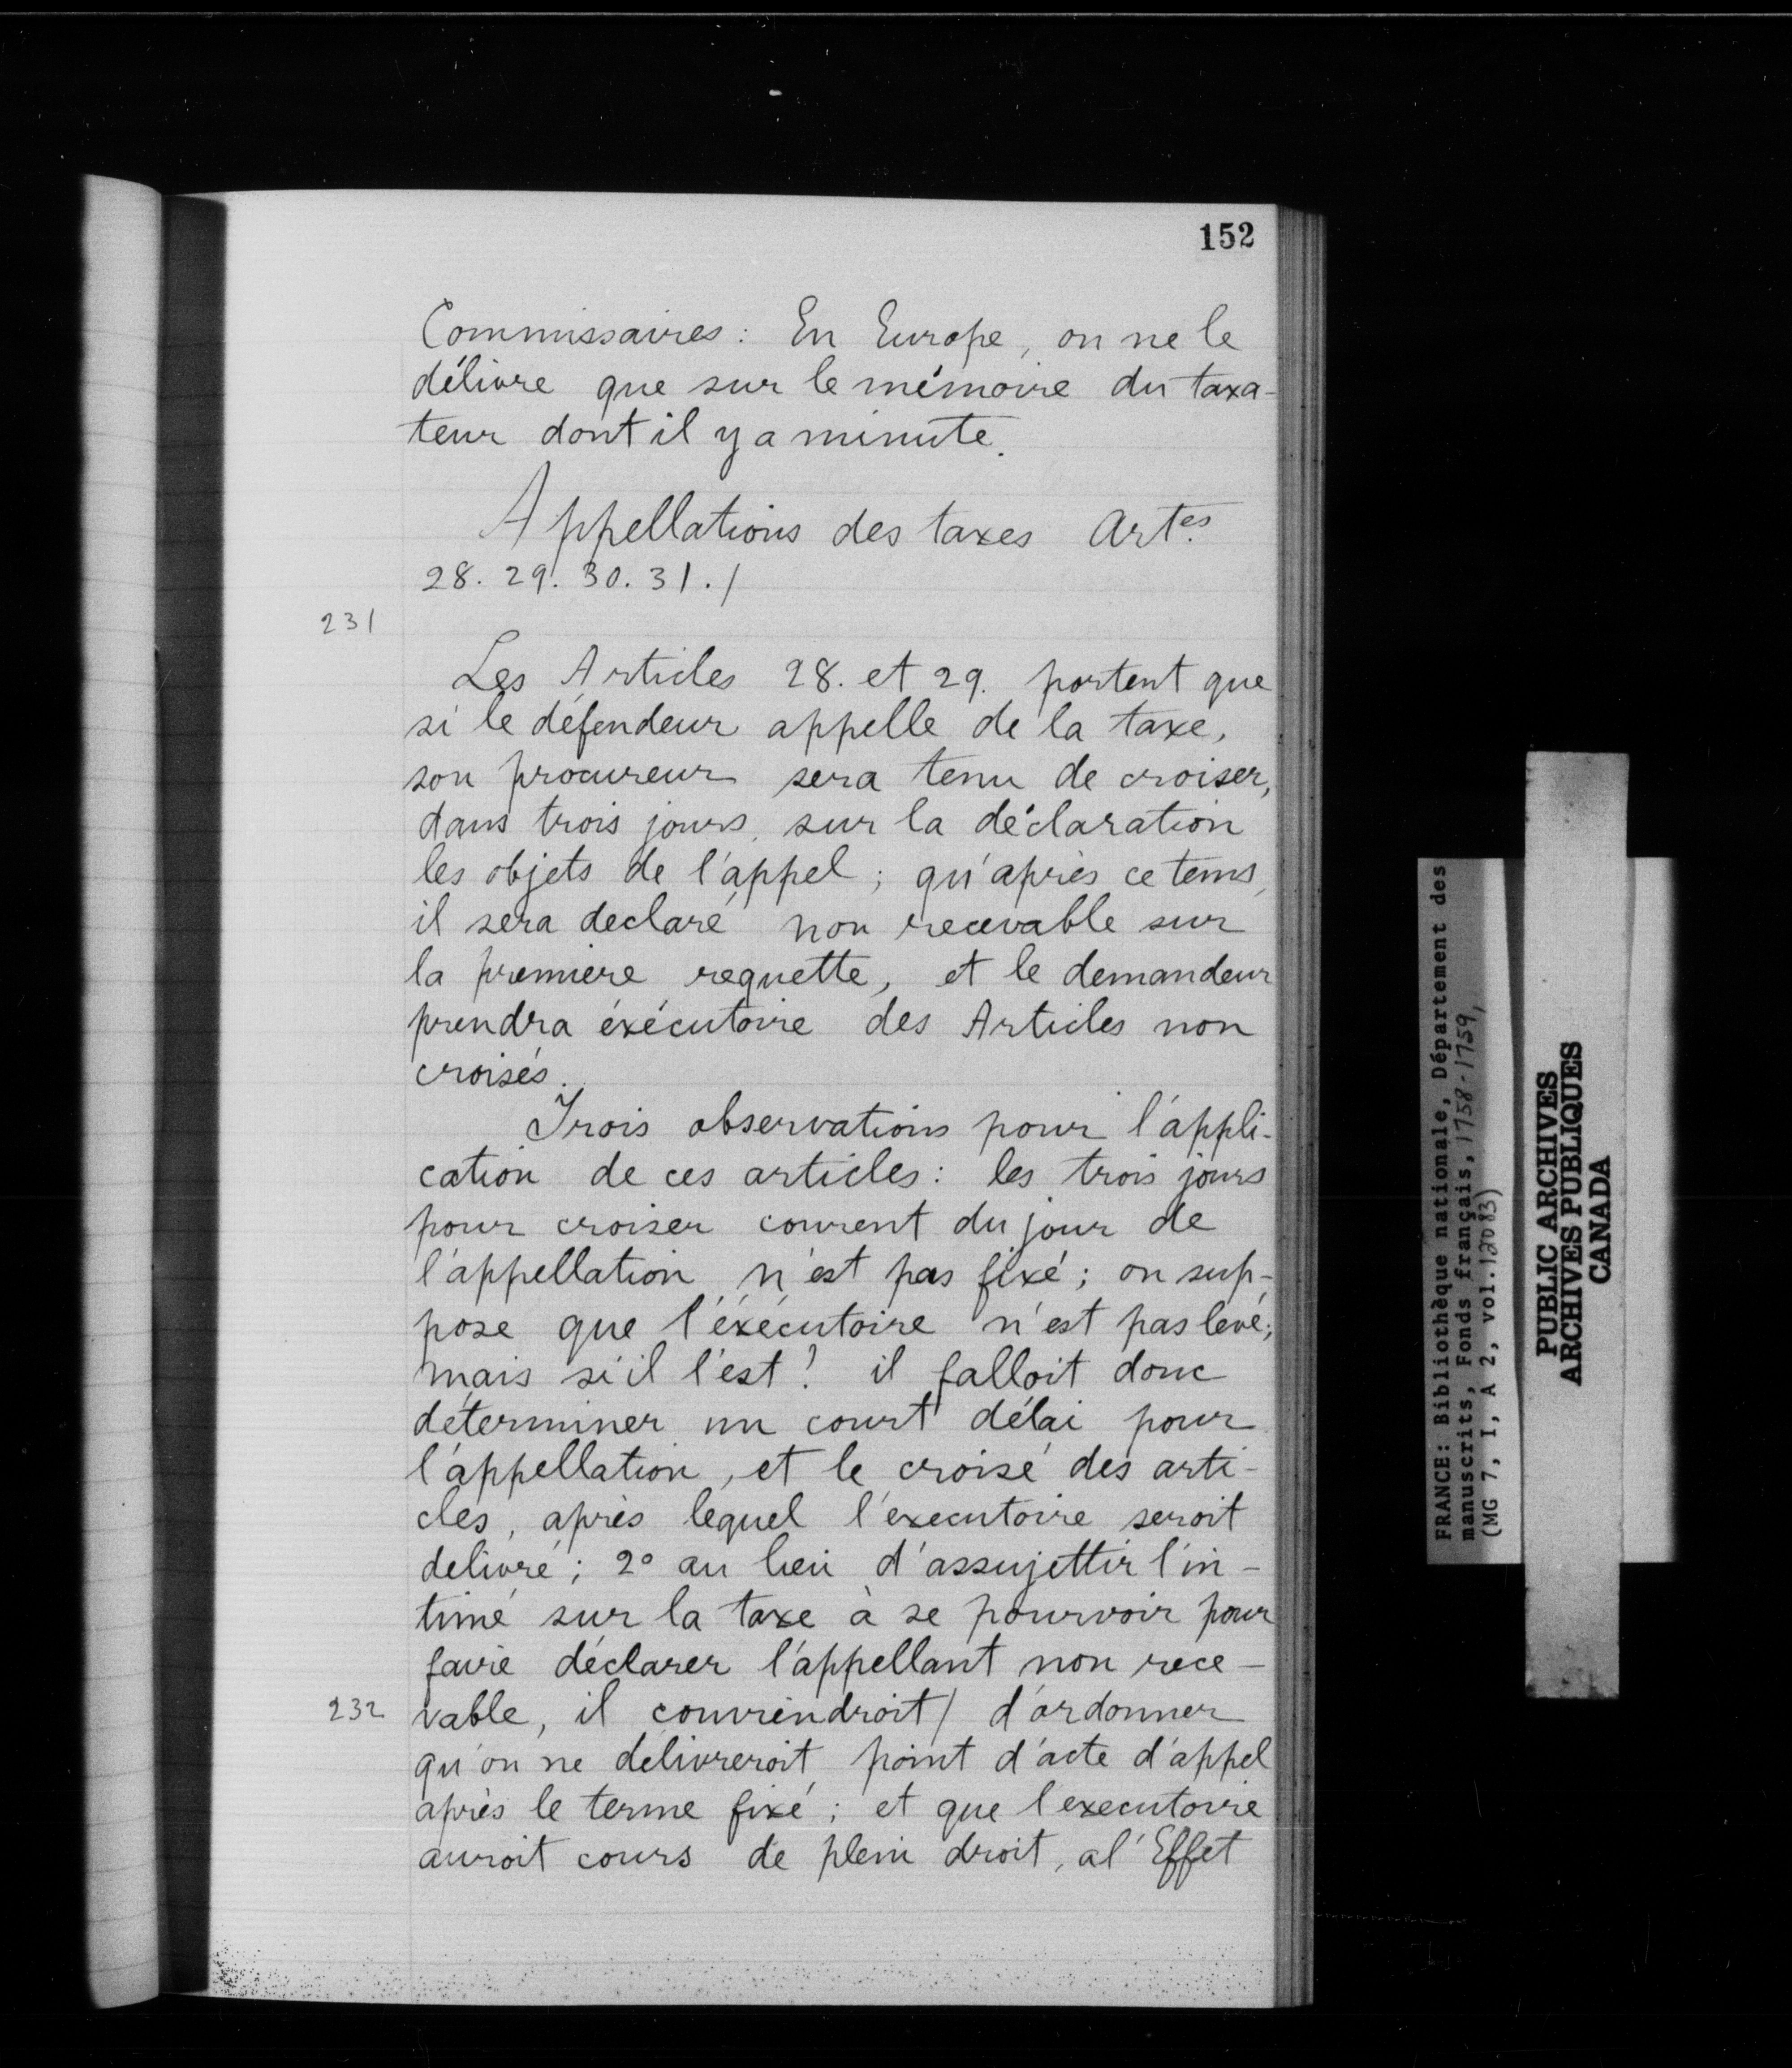 152
Commissaires : En Europe, on ne le
délivre que sur le mémoire du taxa-
teur dont il y a minute.
Appellations des taxes Art.es
28. 29. 30. 31. /
231
Les Articles 28. et 29. portent que
si le défendeur appelle de la taxe,
son procureur sera tenu de croiser,
dans trois jours, sur la déclaration
les objets de l'appel ; qu'après ce tems,
il sera declaré non recevable sur
la premiere requette, et le demandeur
prendra éxécutoire des Articles non
croisés.
Trois observations pour l'appli-
cation de ces articles : les trois jours
pour croiser courent du jour de
l'appellation n'est pas fixé ; on sup-
pose que l'éxécutoire n'est pas levé ;
mais si il l'est ! il falloit donc
déterminer un court délai pour
l'appellation, et le croisé des arti-
cles, après lequel l'executoire seroit
delivré ; 2° au lieu d'assujettir l'in-
timé sur la taxe à se pourvoir pour
faire déclarer l'appellant non rece-
232 vable, il conviendroit / d'ordonner
qu'on ne délivreroit point d'acte d'appel
après le terme fixé ; et que l'executoire
auroit cours de plein droit, a l'Effet
FRANCE: Bibliothèque nationale, Département des
manuscrits, Fonds français, 1758-1759,
(MG 7, I, A 2, vol. 12083)
PUBLIC ARCHIVES
ARCHIVES PUBLIQUES
CANADA